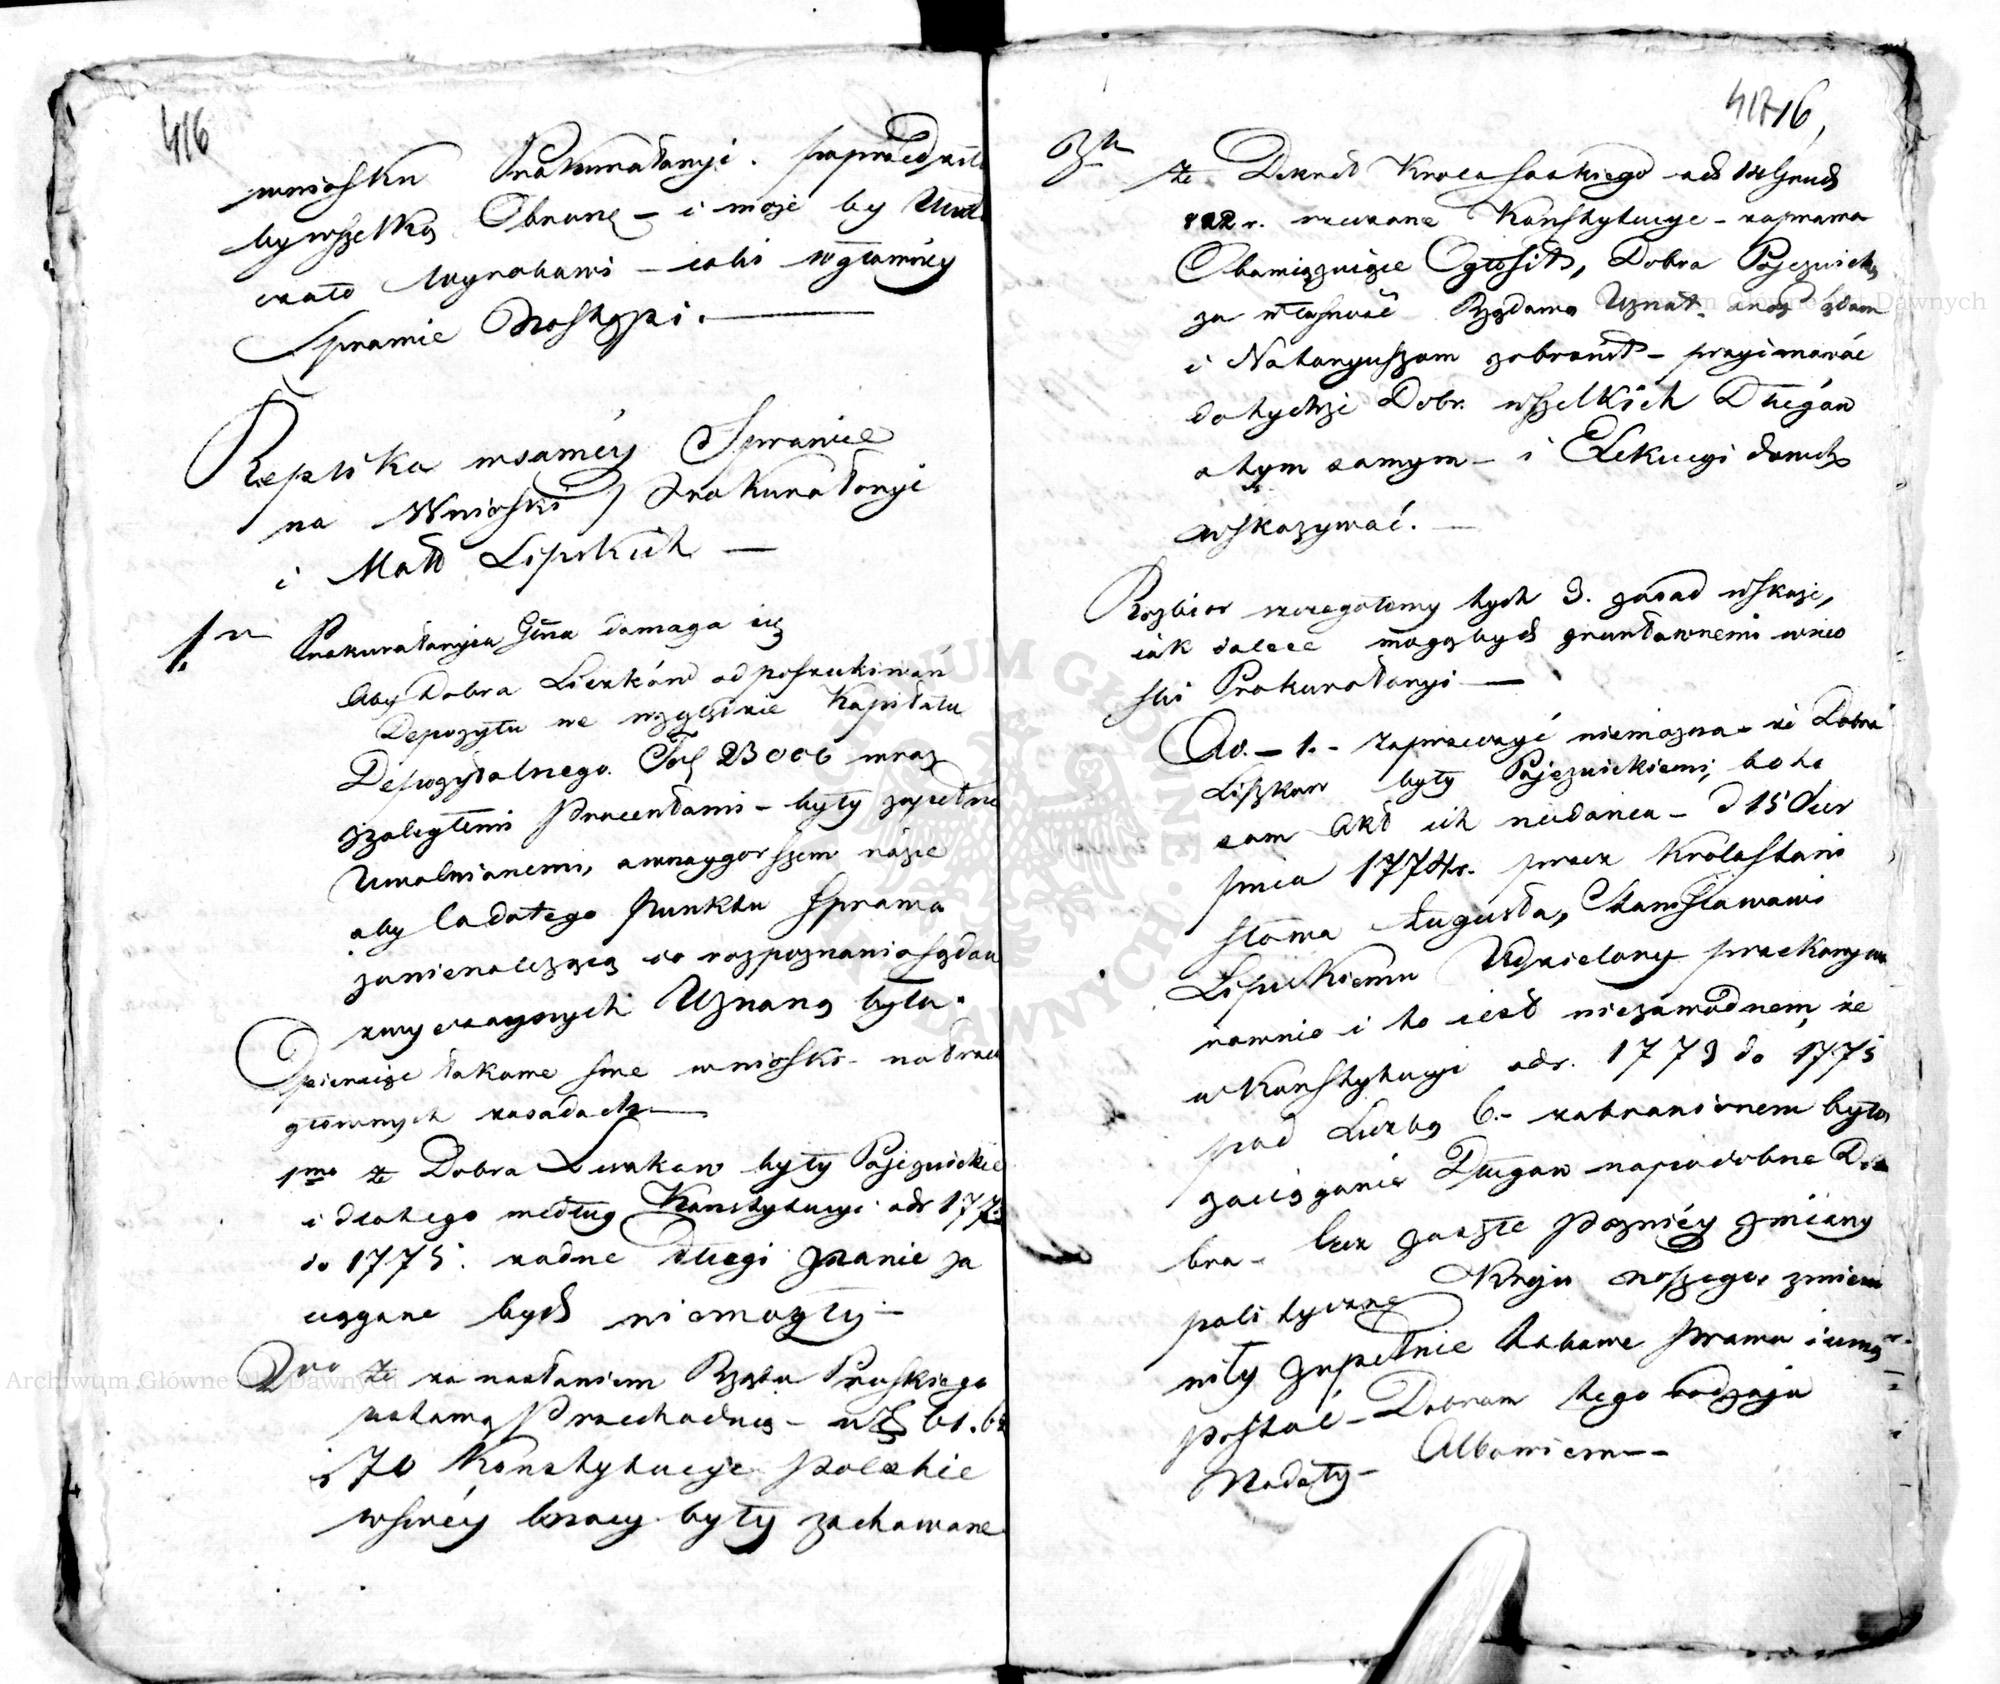 416
wniosku Prokuratoryi. poprzedziła
by wszelką Obronę – i może by Uwol
czało Wyrokowi – iaki w główney
Sprawie Nastąpi. —
Replika w samey Sprawie
na Wnioski Prokuratoryi
i Małż Lipskich —
1. Prokuratorya Głna domaga się
Aby Dobra Liszków od poszukiwań
Depozytu we względzie Kapitału
Depozytalnego Tal 23000 wraz
zzaległemi Procentami – były zupełnie
Uwolnionemi, a w naygorszem rázie
aby Co do tego Punktu Sprawa
za nienależącą do rozpoznania Sądów
zwyczaynych Uznaną była.
Opieraiąc takowe swe wnioski – na trzech
głównych zasadach —
1mo że Dobra Liszkow były Pojezuickie
i dlatego według Konstytucyi od r 177
do 1775. żadne długi na nie za
ciągane bydź niemogły –
2do że za nastaniem Rządu Pruskiego
ustawą Przechodnią – w § 61. 6
i 70 Konstytucye Polskie
w swéy mocy były zachowane
41716,
3o że Dekret Krola Saskiego od Grud
r. rzeczone Konstytucye – za prawa
Obowiązuiące Ogłosił, Dobra Pojezuickie
za własność Rządową Uznał. oraz Sądom
i Notaryuszom zabronił – przyimować
do tychże Dobr. wszelkich Długów
a tym samym – i Exekucyi
wskazywać. —
Rozbior szczegołowy tych 3. zasad wskaże,
iak dalece mogą bydź gruntownemi wnio
ski Prokuratoryi —
Ad. – 1. – zaprzeczyć niemożna – że Dobra
Liszkow były Pojezuickiemi, bo to
sam Akt ich nadania – d 15 Sier
pnia 1774 r. przez Króla Stani
sława Augusta, Stanisławowi
Lipskiemu Udzielony przekonywa
rownie i to iest niezawodnem, że
w Konstytucyi od r. 1773 do 1775
pod Liczbą 6. – zabronionem było
zaciąganie Długow na podobne Do
bra – lecz zaszłe pózniéy zmiany
polityczne Kraju naszego zmieni
niły zupełnie takowe prawa i inną
postać – Dobrom tego rodzaju
Nadały – Albowiem – –